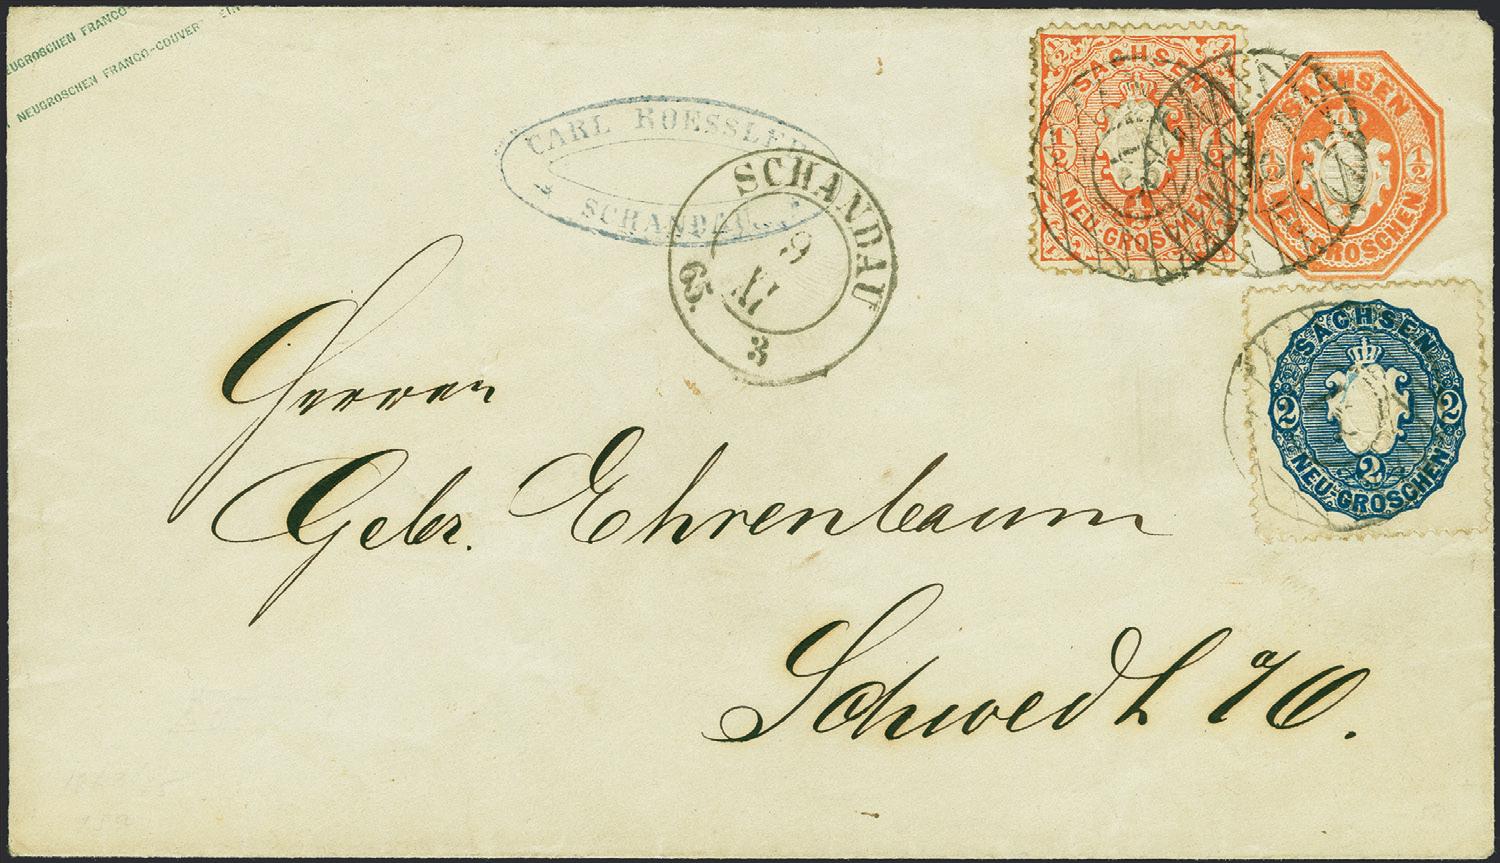 NEUGROSCHEN FRANCO-COUVERT EIN
NEUGROSCHEN FRANCO
CARL ROESSLER
SCHANDAU
SCHANDAU
9
XI
65
3
SACHSEN
1/2
1/2
1/2
1/2
NEU GROSCHEN
SACHSEN
1/2
NEU-GROSCHEN
SACHSEN
2
2
2
NEU-GROSCHEN
Herren
Gebr. Ehrenbaum
Schwedt a/O.